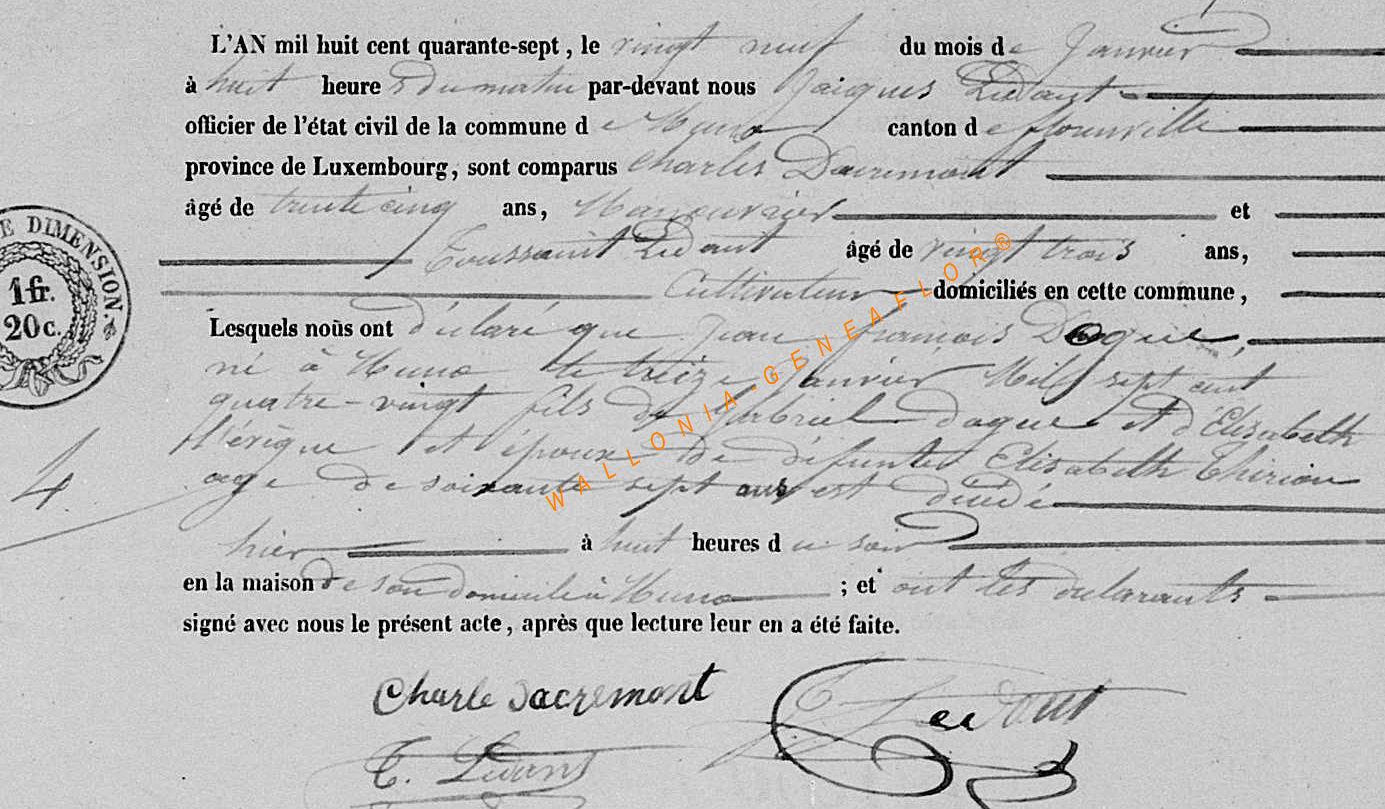 L'AN mil huit cent quarante-sept, le vingt neuf du mois de Janvier
à huit heures du matin par-devant nous Jaiques Ledant
officier de l'état civil de la commune de Muno canton de florenville
province de Luxembourg, sont comparus Charles Dacremont
âgé de trente cinq ans, Manouvrier et
Toussaint Ledant âgé de vingt trois ans,
Cultivateur domiciliés en cette commune,
Lesquels nous ont déclaré que Jean françois Dogue,
né à Muno le treize Janvier Mil sept cent
quatre-vingt fils de Gabriel dogue et d'Elisabeth
et époux de défunte Elisabeth Thirion
age de soixante sept ans est décédé
hier à huit heures du soir
en la maison de son domicile à Muno ; et ont les déclarants
signé avec nous le présent acte, après que lecture leur en a été faite.
Charle Dacremont
Ledant
T. Ledant
E DIMENSION.
1 fr.
20 c.
4
WALLONIA-GENEAFLOR®